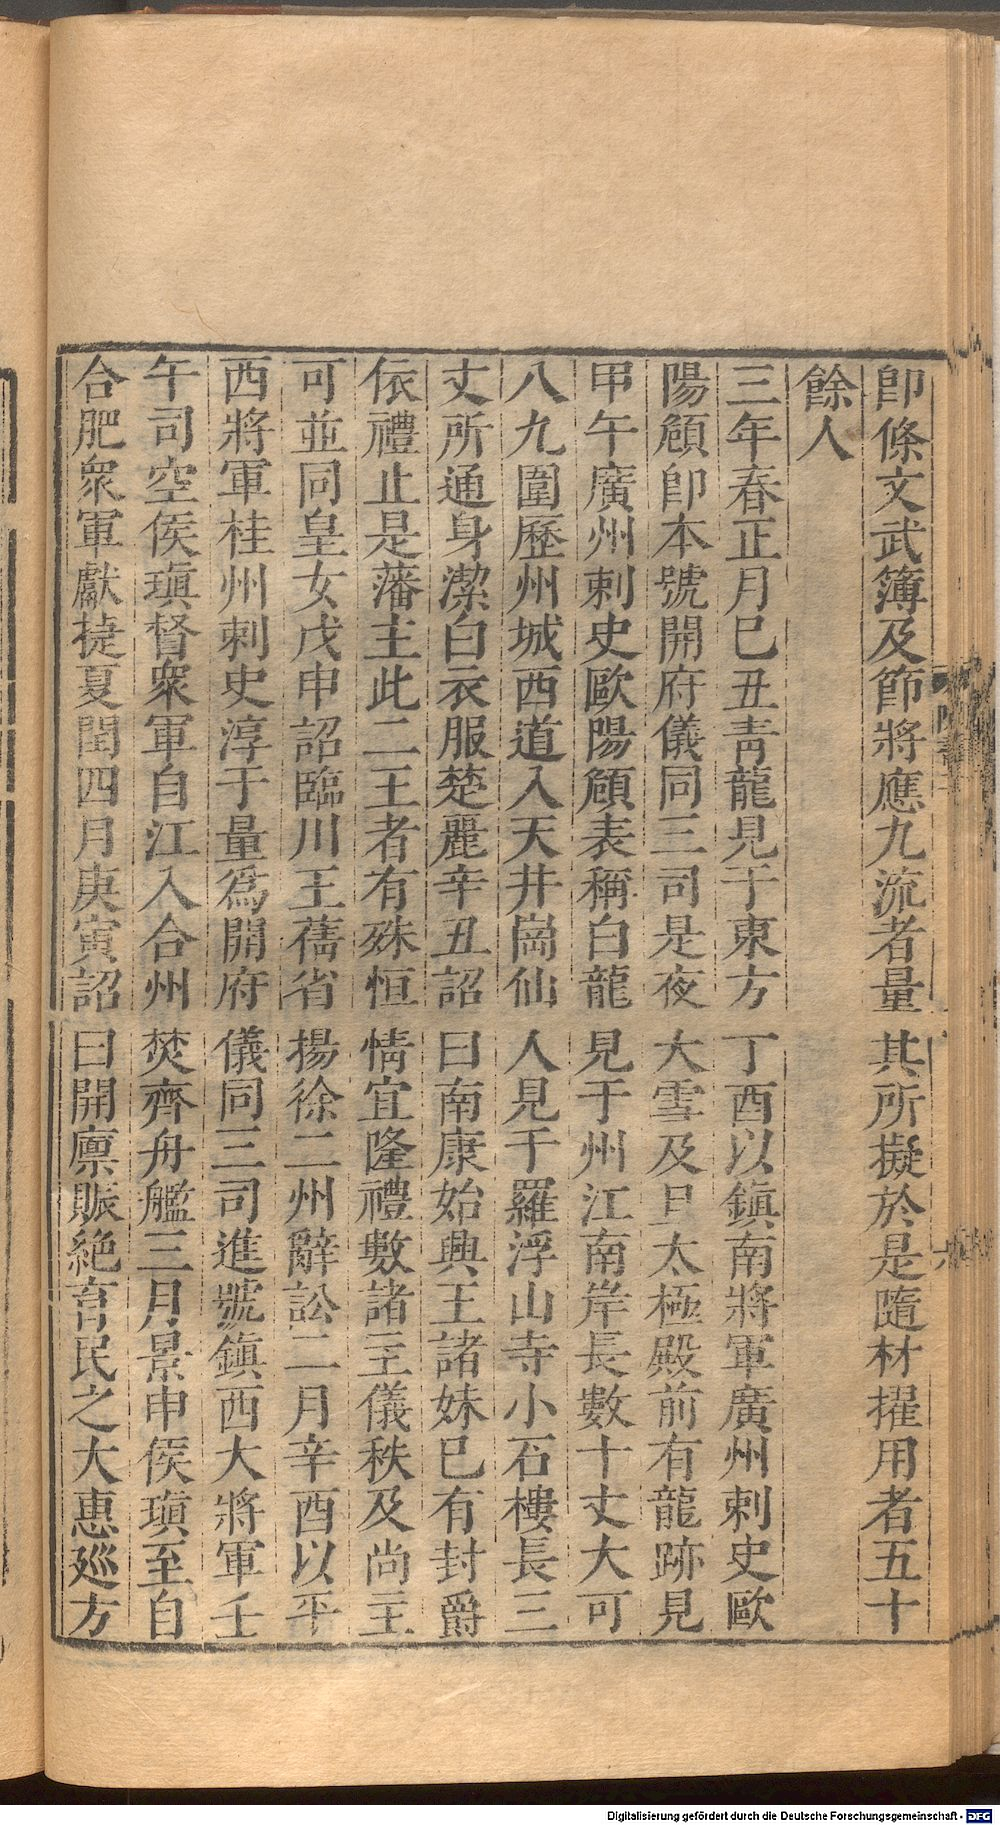 卽條文武簿及節將應九流者量其所擬於是隨材擢用者五十
餘人
三年春正月巳丑靑龍見于東方丁酉以鎭南將軍廣州刺史歐
陽頠卽本號開府儀同三司是夜大雪及旦太極殿前有龍跡見
甲午廣州刺史歐陽頠表稱白龍見于州江南岸長數十丈大可
八九圍歷州城西道入天井崗仙人見于羅浮山寺小石樓長三
丈所通身潔白衣服楚麗辛丑詔曰南康始興王諸妹巳有封爵
依禮止是藩主此二王者有殊恒情宜隆禮數諸主儀秩及尚主
可並同皇女戊申詔臨川王蒨省揚徐二州辭訟二月辛酉以平
西將軍桂州刺史淳于量爲開府儀同三司進號鎭西大將軍壬
午司空侯瑱督衆軍自江入合州焚齊舟艦三月景申侯瑱至自
合肥衆軍獻捷夏閏四月庚寅詔曰開廪賑絶育民之大惠廵方
六
Digitalisierung gefördert durch die Deutsche Forschungsgemeinschaft - DFG